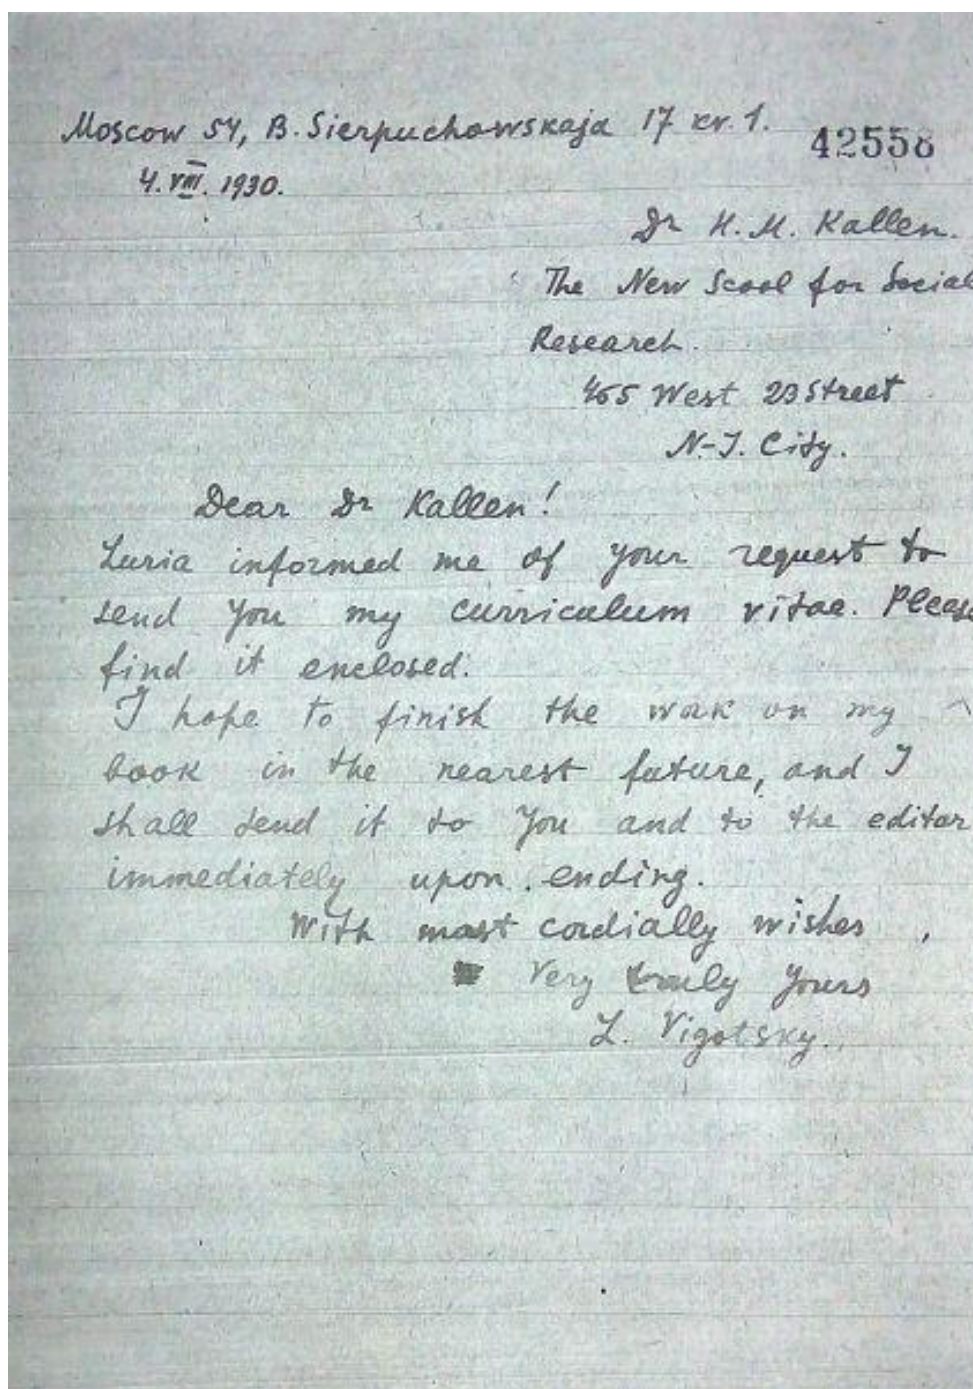 Moscow 54, B. Sierpuchowskaja 17 kv. 1.
42558
4. VIII. 1930.
Dr H. M. Kallen.
The New Scool for Social
Research.
465 West 23 Street
N-J. City.
Dear Dr Kallen!
Luria informed me of your request to
send you my curriculum vitae. Please
find it enclosed.
I hope to finish the work on my
book in the nearest future, and I
shall send it to You and to the editor
immediately upon ending.
With most cordially wishes,
Very truly Yours
L. Vigotsky.